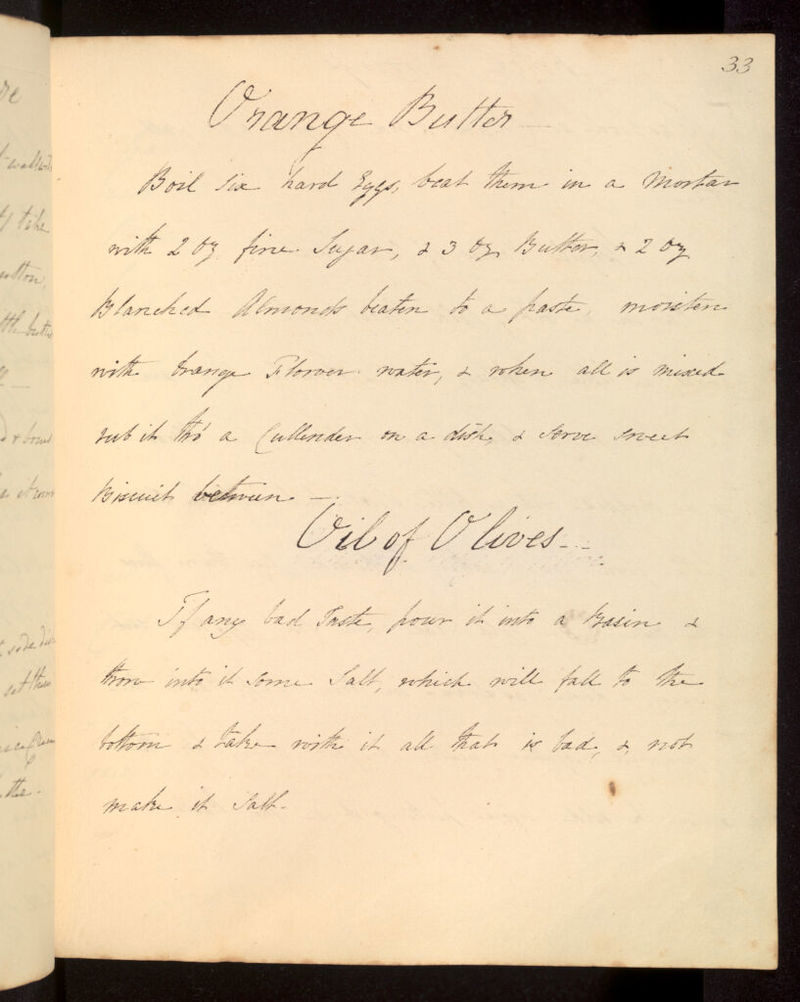 33
Orange Butter
Boil six hard Eggs, beat them in a Mortar
with 2 oz fine Sugar, & 3 oz Butter, & 2 oz
Blanched Almonds beaten to a paste, moisten
with Orange Flower water, & when all is mixed
rub it thro' a Cullender on a dish, & serve sweet
Biscuit between —
Oil of Olives
If any bad Taste, pour it into a Basin &
throw into it some Salt, which will fall to the
bottom & take with it all that is bad, & not
make it Salt.